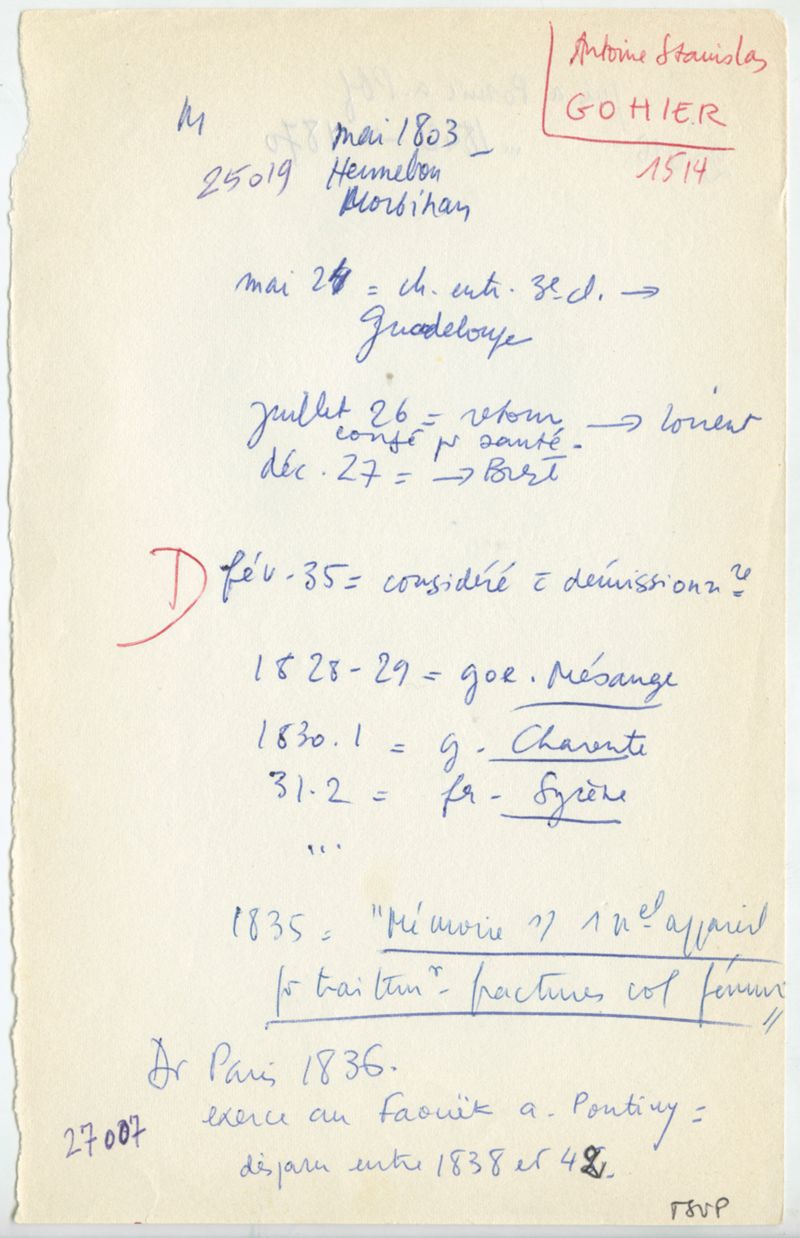 Antoine Stanislas
GOHIER
1514
M
mai 1803
25019 Hennebon
Morbihan
mai 24 = ch. entr. 3e cl. →
Guadeloupe
juillet 26 = retour → Lorient
congé pr santé.
déc. 27 = → Brest
D fév. 35 = considéré = démissionnre
1828-29 = goe. Mésange
1830.1 = g. Charente
31.2 = fr. Syrène
...
1835 = "Mémoire s/ 1 nel appareil
pr traittmt fractures col fémur"
Dr Paris 1836.
exerce au Faouëk a. Pontivy =
27007
disparu entre 1838 et 42.
TSVP